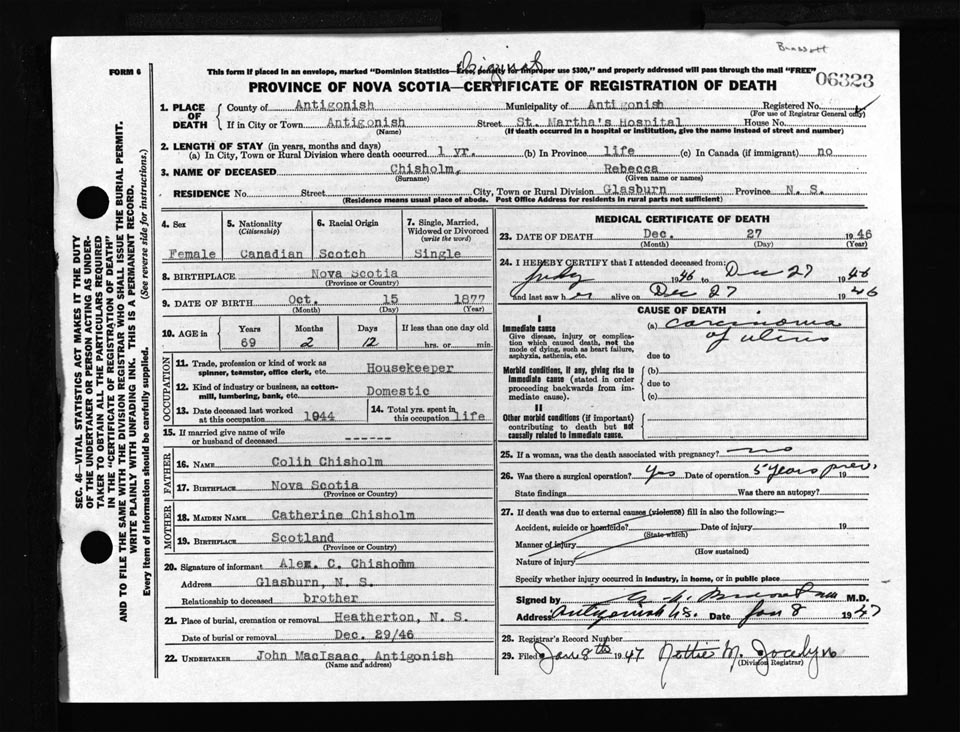 Brassett
FORM 6
Original
This form if placed in an envelope, marked "Dominion Statistics—Free, penalty for improper use $300," and properly addressed will pass through the mail "FREE"
06323
PROVINCE OF NOVA SCOTIA—CERTIFICATE OF REGISTRATION OF DEATH
1. PLACE OF DEATH
County of Antigonish Municipality of Antigonish Registered No.
(For use of Registrar General only)
If in City or Town Antigonish Street St. Martha's Hospital House No.
(Name) (If death occurred in a hospital or institution, give the name instead of street and number)
2. LENGTH OF STAY (in years, months and days)
(a) In City, Town or Rural Division where death occurred 1 yr. (b) In Province life (c) In Canada (if immigrant) no
3. NAME OF DECEASED Chisholm, Rebecca
(Surname) (Given name or names)
RESIDENCE No. Street City, Town or Rural Division Glasburn Province N. S.
(Residence means usual place of abode. Post Office Address for residents in rural parts not sufficient)
4. Sex 5. Nationality (Citizenship) 6. Racial Origin 7. Single, Married, Widowed or Divorced (write the word)
Female Canadian Scotch Single
8. BIRTHPLACE Nova Scotia
(Province or Country)
9. DATE OF BIRTH Oct. 15 1877
(Month) (Day) (Year)
10. AGE in Years Months Days If less than one day old
69 2 12 hrs. or min.
OCCUPATION
11. Trade, profession or kind of work as spinner, teamster, office clerk, etc. Housekeeper
12. Kind of industry or business, as cotton-mill, lumbering, bank, etc. Domestic
13. Date deceased last worked at this occupation 1944 14. Total yrs. spent in this occupation life
15. If married give name of wife or husband of deceased ------
FATHER
16. NAME Colin Chisholm
17. BIRTHPLACE Nova Scotia
(Province or Country)
MOTHER
18. MAIDEN NAME Catherine Chisholm
19. BIRTHPLACE Scotland
(Province or Country)
20. Signature of informant Alex. C. Chishomm
Address Glasburn, N. S.
Relationship to deceased brother
21. Place of burial, cremation or removal Heatherton, N. S.
Date of burial or removal Dec. 29/46
22. UNDERTAKER John MacIsaac, Antigonish
(Name and address)
MEDICAL CERTIFICATE OF DEATH
23. DATE OF DEATH Dec. 27 1946
(Month) (Day) (Year)
24. I HEREBY CERTIFY that I attended deceased from:
July 1946 to Dec 27 1946
and last saw her alive on Dec 27 1946
CAUSE OF DEATH
I
Immediate cause (a) carcinoma of uterus
Give disease, injury or complication which caused death, not the mode of dying, such as heart failure, asphyxia, asthenia, etc.
due to
Morbid conditions, if any, giving rise to immediate cause (stated in order proceeding backwards from immediate cause).
(b)
due to
(c)
II
Other morbid conditions (if important) contributing to death but not causally related to immediate cause.
25. If a woman, was the death associated with pregnancy? no
26. Was there a surgical operation? Yes Date of operation 5 years prev. 19
State findings Was there an autopsy?
27. If death was due to external causes (violence) fill in also the following:—
Accident, suicide or homicide? Date of injury 19
(State which)
Manner of injury
(How sustained)
Nature of injury
Specify whether injury occurred in industry, in home, or in public place
Signed by M.D.
Address Antigonish N.S. Date Jan 8 1947
28. Registrar's Record Number
29. Filed Jan 8th 1947 Nettie M. Jocelyn
(Division Registrar)
SEC. 46—VITAL STATISTICS ACT MAKES IT THE DUTY
OF THE UNDERTAKER OR PERSON ACTING AS UNDER-
TAKER TO OBTAIN ALL THE PARTICULARS REQUIRED
IN THE "CERTIFICATE OF REGISTRATION OF DEATH"
AND TO FILE THE SAME WITH THE DIVISION REGISTRAR WHO SHALL ISSUE THE BURIAL PERMIT.
WRITE PLAINLY WITH UNFADING INK. THIS IS A PERMANENT RECORD.
Every item of information should be carefully supplied. (See reverse side for instructions.)